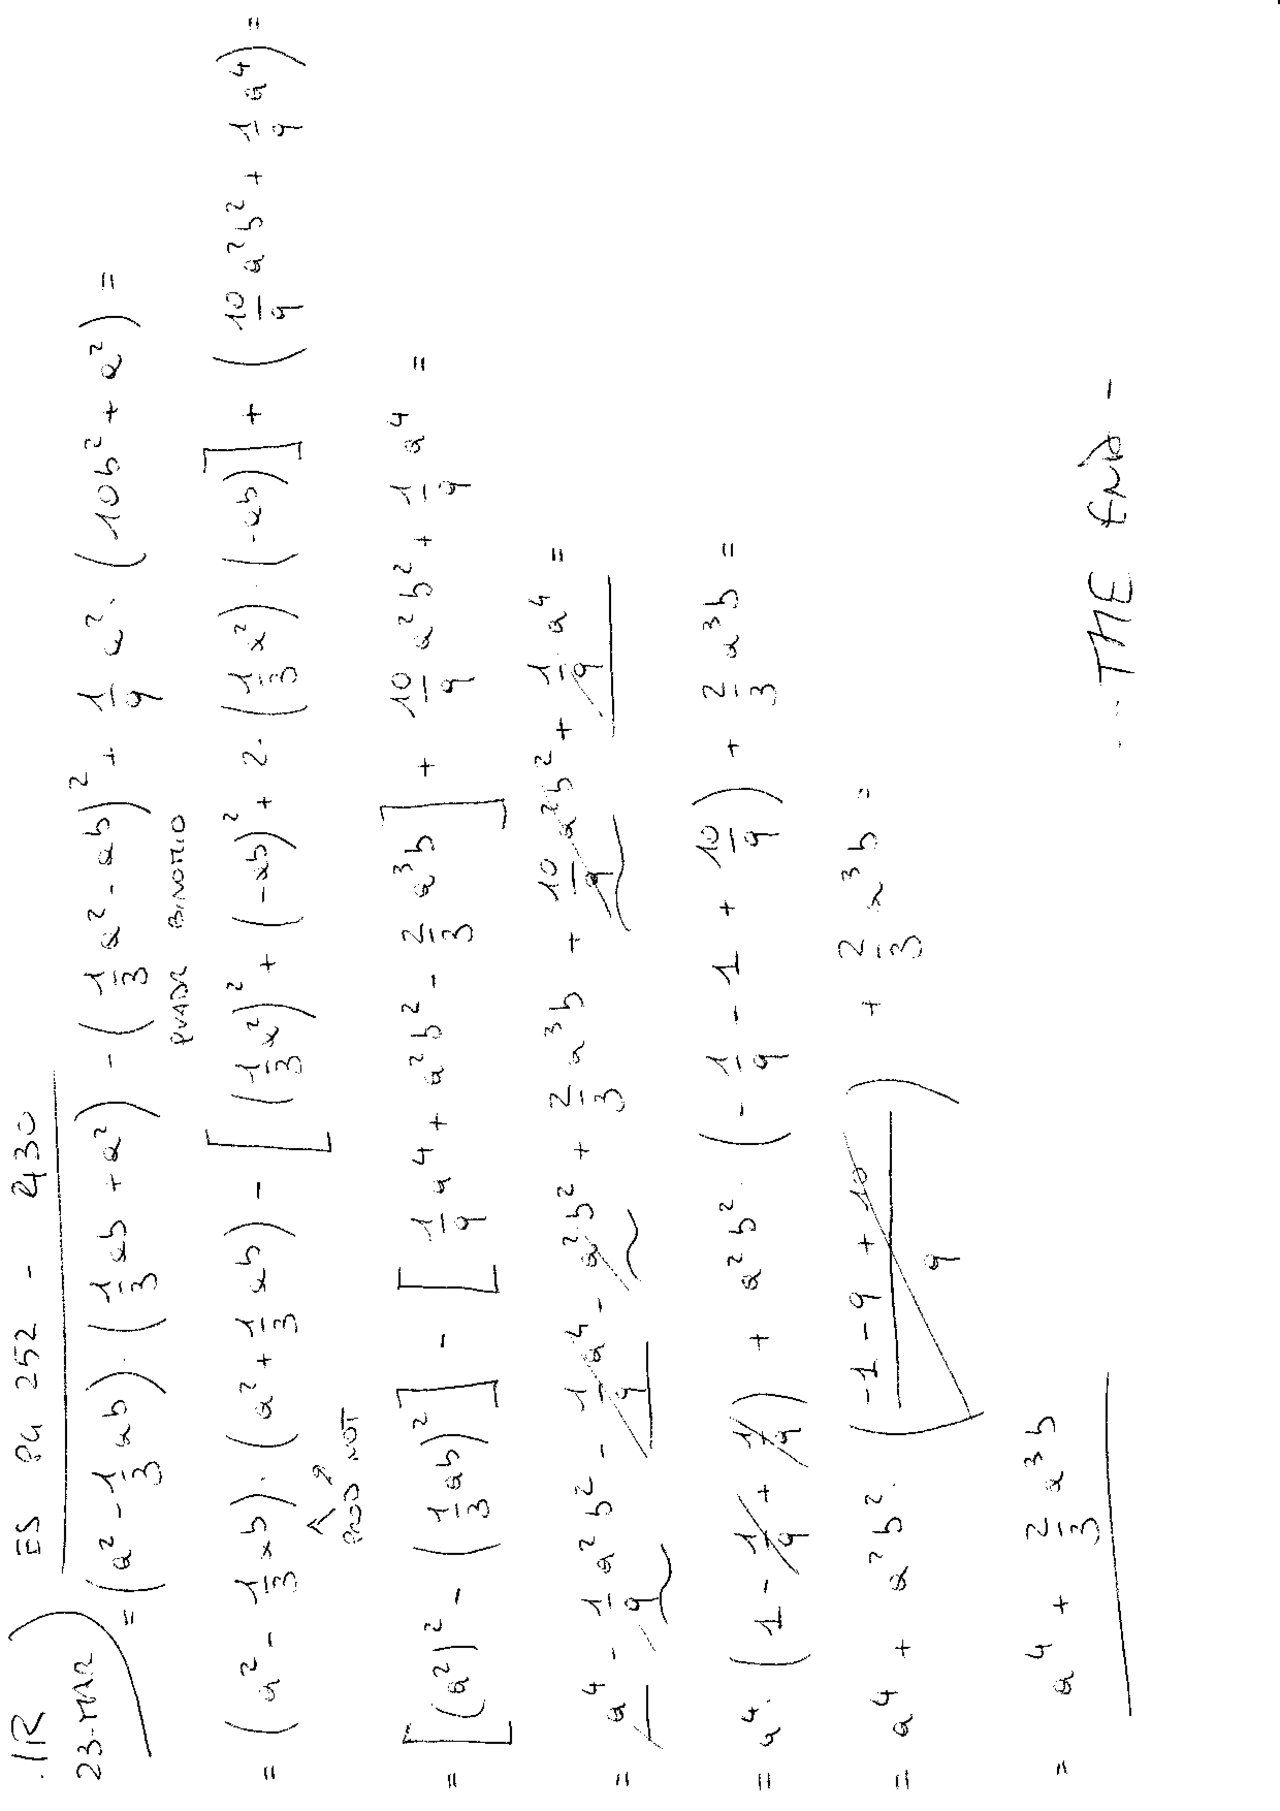 .IR ES PG 252 - 2430
23-MAR
= (a² - 1/3 ab) · (1/3 ab + a²) - (1/3 a² - ab)² + 1/9 a² · (10b² + a²) =
QUADR BINOMIO
= (a² - 1/3 ab) · (a² + 1/3 ab) - [(1/3 a²)² + (-ab)² + 2 · (1/3 a²) · (-ab)] + (10/9 a²b² + 1/9 a⁴) =
PROD NOT
= [(a²)² - (1/3 ab)²] - [1/9 a⁴ + a²b² - 2/3 a³b] + 10/9 a²b² + 1/9 a⁴ =
= a⁴ - 1/9 a²b² - 1/9 a⁴ - a²b² + 2/3 a³b + 10/9 a²b² + 1/9 a⁴ =
= a⁴ · (1 - 1/9 + 1/9) + a²b² · (- 1/9 - 1 + 10/9) + 2/3 a³b =
= a⁴ + a²b² · ((-1 - 9 + 10)/9) + 2/3 a³b =
= a⁴ + 2/3 a³b
... THE END -